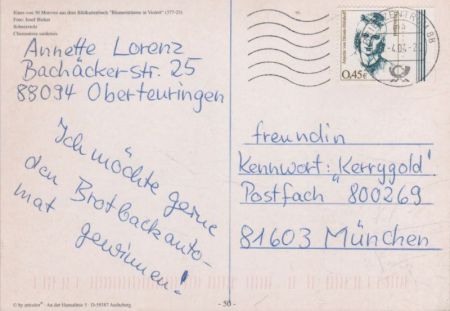 Eines von 50 Motiven aus dem Bildkartenbuch "Blumenträume in Violett" (377-25)
Foto: Josef Bieker
Schneestolz
Chionodoxa sardensis
Annette Lorenz
Bachäcker-str. 25
88094 Oberteuringen
Ich möchte gerne
den Brotbackauto-
mat gewinnen!
0,45€
freundin
Kennwort: "Kerrygold"
Postfach 800269
81603 München
© by artcolor® · An der Hansalinie 5 · D-59387 Ascheberg
- 50 -